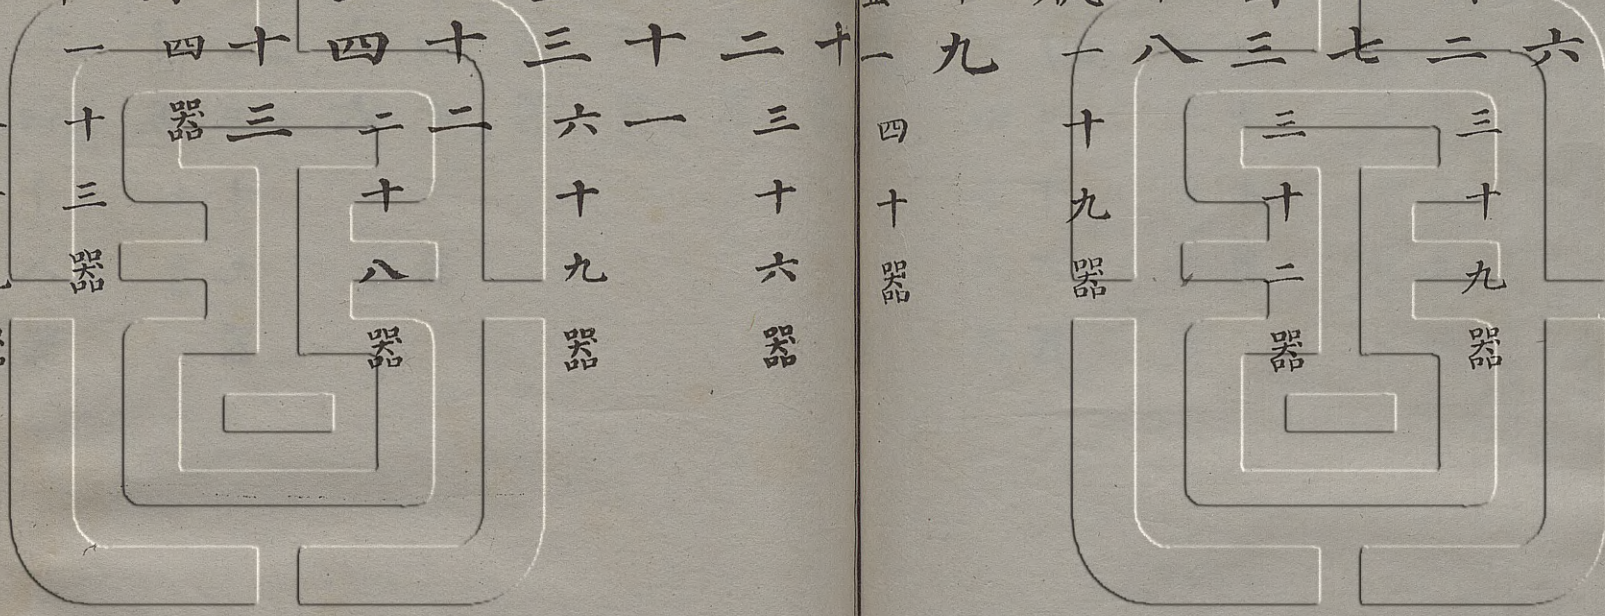 六
二三十九器
七
三三十二器
八
一十九器
九
一四十器
十
二三十六器
十一
三六十九器
十二
四二十八器
十三
四器
一十三器